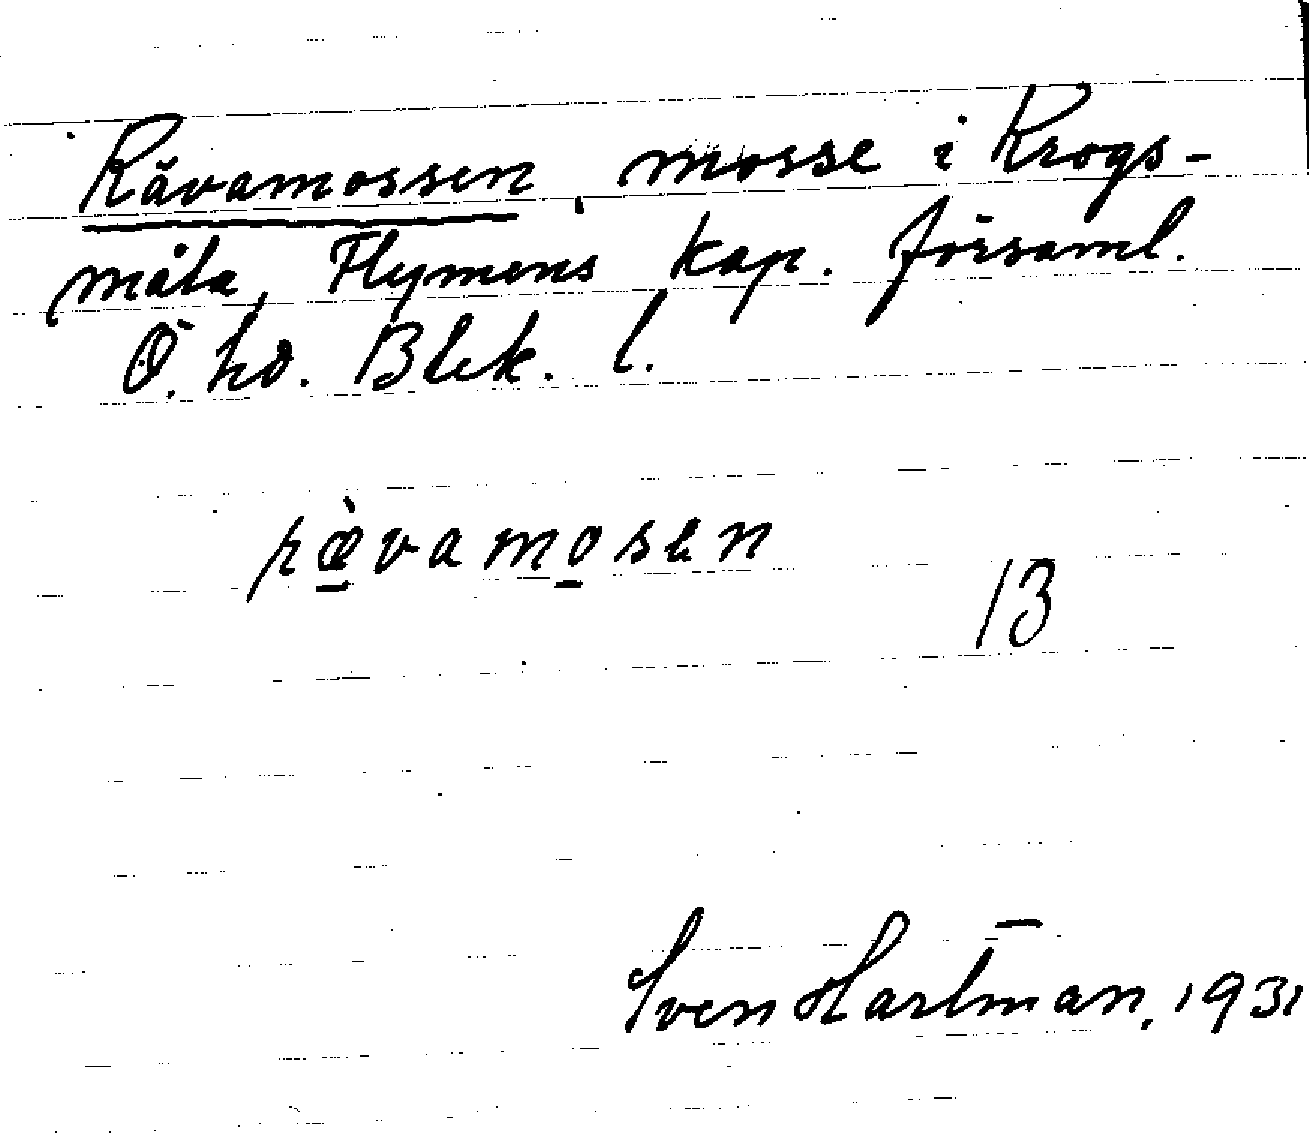 Rävamossen, mosse i Krogs-
måla, Flymens kap. församl.
Ö. hd. Blek. l.
ræ̀vamosen
13
Sven Hartman, 1931